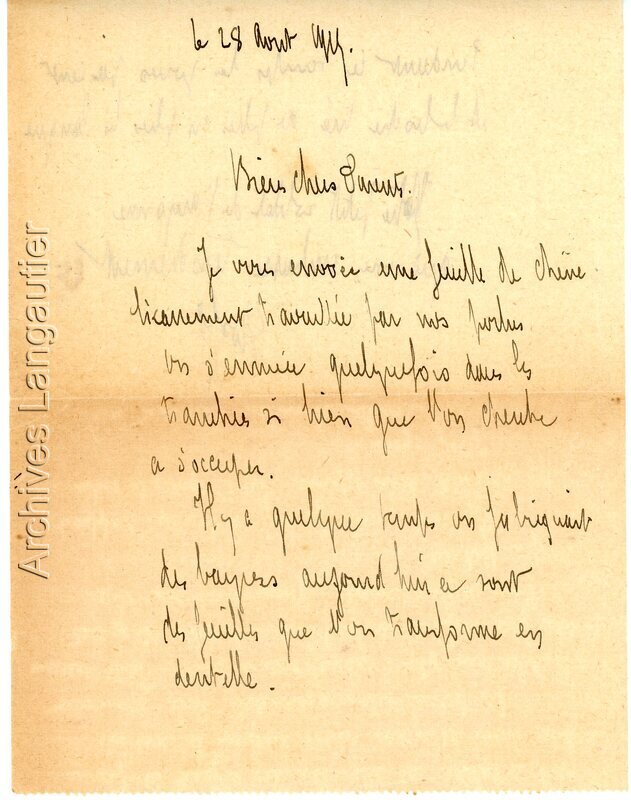 le 28 Aout 1915.
Bien chers Parents.
Je vous envoie une feuille de chêne
bizarement travaillée par nos poilus
on s'ennuie quelquefois dans les
tranchées si bien que l'on cherche
a s'occuper.
Il y a quelque temps on fabriquait
des bagues aujourd'hui ce sont
des feuilles que l'on transforme en
dentelle.
Archives Langautier